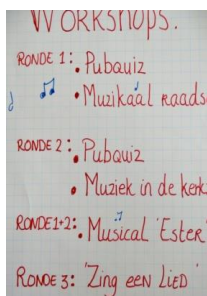 WORKSHOPS:
RONDE 1: • Pubquiz
• Muzikaal raads
RONDE 2: • Pubquiz
• Muziek in de kerk
RONDE 1+2: • Musical 'Ester'
RONDE 3: 'Zing een Lied'